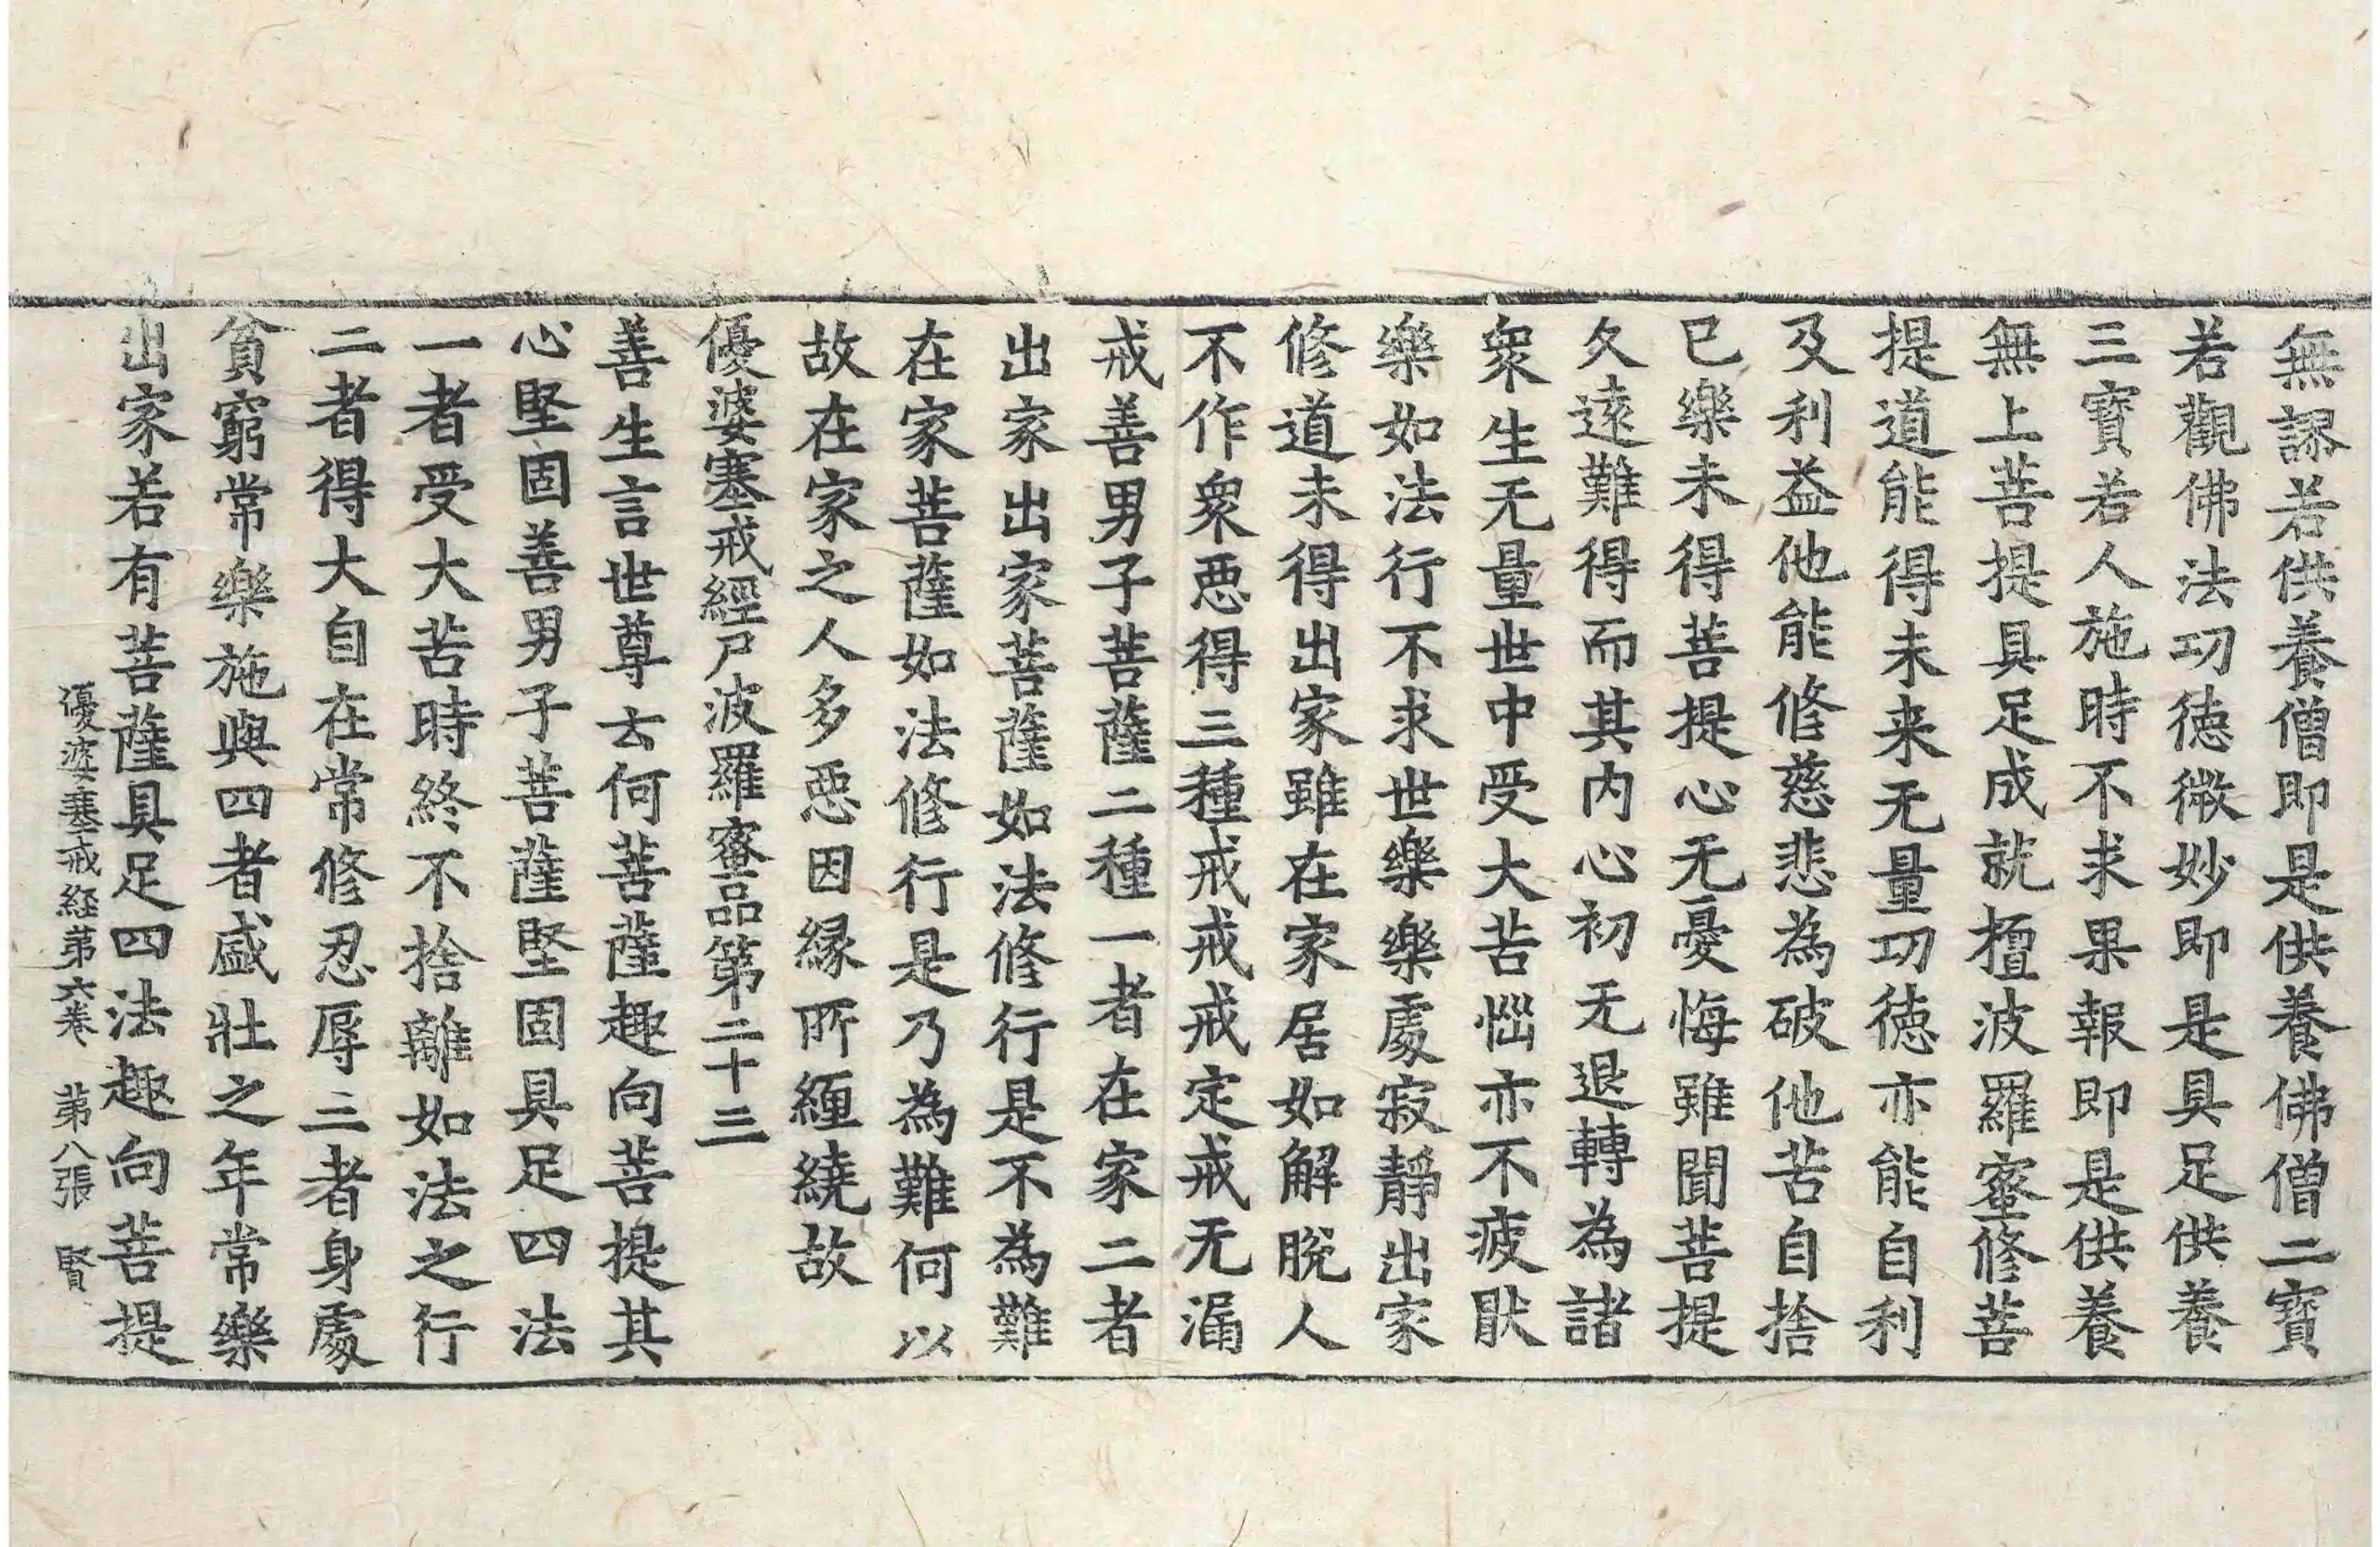 無謬若供養僧即是供養佛僧二寶
若觀佛法功徳微妙即是具足供養
三寶若人施時不求果報即是供養
無上菩提具足成就檀波羅蜜修菩
提道能得未来无量功徳亦能自利
及利益他能修慈悲為破他苦自捨
已樂未得菩提心无憂悔雖聞菩提
久遠難得而其内心初无退轉為諸
衆生无量世中受大苦惱亦不疲猒
樂如法行不求世樂樂處寂靜出家
修道未得出家雖在家居如解脫人
不作衆惡得三種戒戒戒定戒无漏
戒善男子菩薩二種一者在家二者
出家出家菩薩如法修行是不為難
在家菩薩如法修行是乃為難何以
故在家之人多惡因縁所纏繞故
優婆塞戒經尸波羅蜜品第二十三
善生言世尊云何菩薩趣向菩提其
心堅固善男子菩薩堅固具足四法
一者受大苦時終不捨離如法之行
二者得大自在常修忍辱三者身處
貧窮常樂施與四者盛壯之年常樂
出家若有菩薩具足四法趣向菩提
優婆塞戒経苐六卷 苐八張 賢